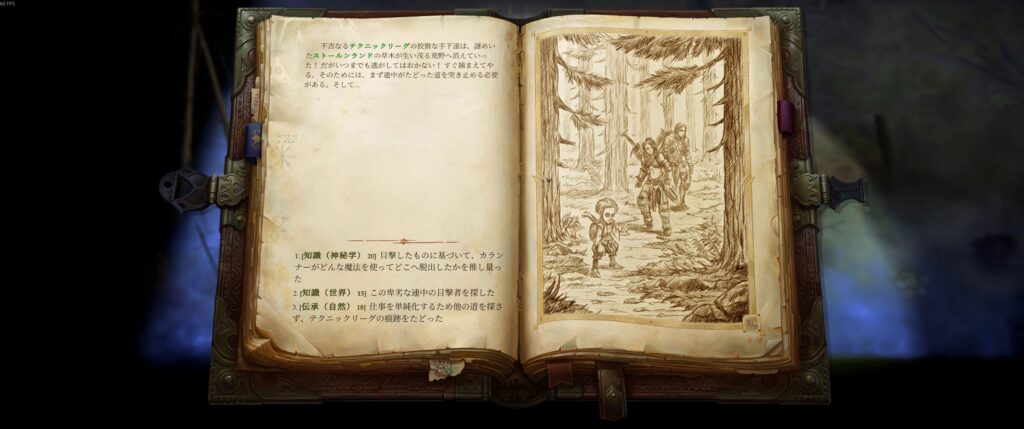 60 FPS
不吉なるテクニックリーグの狡猾な手下達は、謎めい
たストールンランドの草木が生い茂る荒野へ消えていっ
た！だがいつまでも逃がしてはおかない！すぐ捕まえてや
る。そのためには、まず連中がたどった道を突き止める必要
がある。そして...
1. [知識（神秘学） 20] 目撃したものに基づいて、カラン
ナーがどんな魔法を使ってどこへ脱出したかを推し量っ
た
2. [知識（世界） 15] この卑劣な連中の目撃者を探した
3. [伝承（自然） 18] 仕事を単純化するため他の道を探さ
ず、テクニックリーグの痕跡をたどった